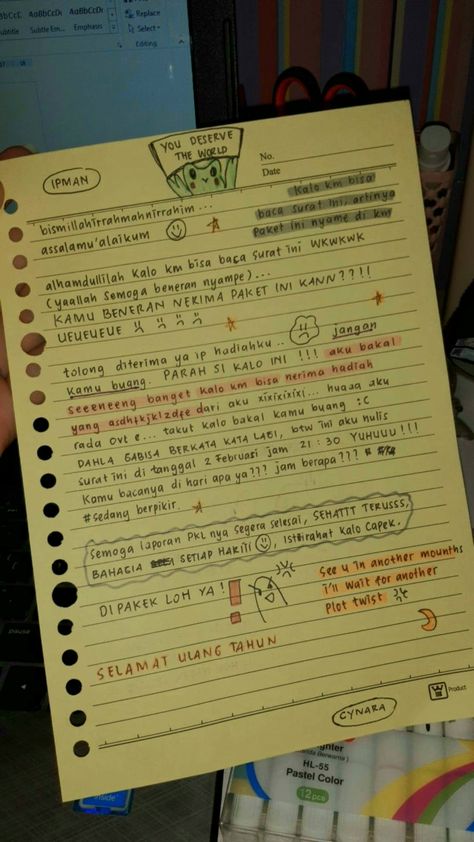 AaBbCcC AaBbCcDc AaBbCcDc
Subtitle Subtle Em... Emphasis
Replace
Select
Editing
YOU DESERVE
THE WORLD
IPMAN
No.
Date
bismillahirrahmahnirrahim...
assalamu'alaikum
Kalo km bisa
baca surat ini, artinya
paket ini nyame di km
alhamdulilah kalo km bisa baca surat ini WKWKWK
(yaallah semoga beneran nyampe)...
KAMU BENERAN NERIMA PAKET INI KANN??!!
UEUEUEUE
tolong diterima ya ip hadiahku.. jangan
kamu buang. PARAH SI KALO INI !!! aku bakal
seeeneeng banget kalo km bisa nerima hadiah
yang dari aku xixixixixi... huaaa aku
rada ovt e... takut kalo bakal kamu buang :C
DAHLA GABISA BERKATA KATA LAGI, btw ini aku nulis
surat ini di tanggal 2 Februasi jam 21:30 YUHUUU!!!
Kamu bacanya di hari apa ya??? jam berapa???
#sedang berpikir.
semoga laporan PKL nya segera selesai, SEHATTT TERUSSS,
BAHAGIA SETIAP HARITI, istirahat kalo capek.
DIPAKEK LOH YA!
see u in another mounths
i'll wait for another
plot twist
SELAMAT ULANG TAHUN
CYNARA
Product
HL-55
Pastel Color
12pcs
inside